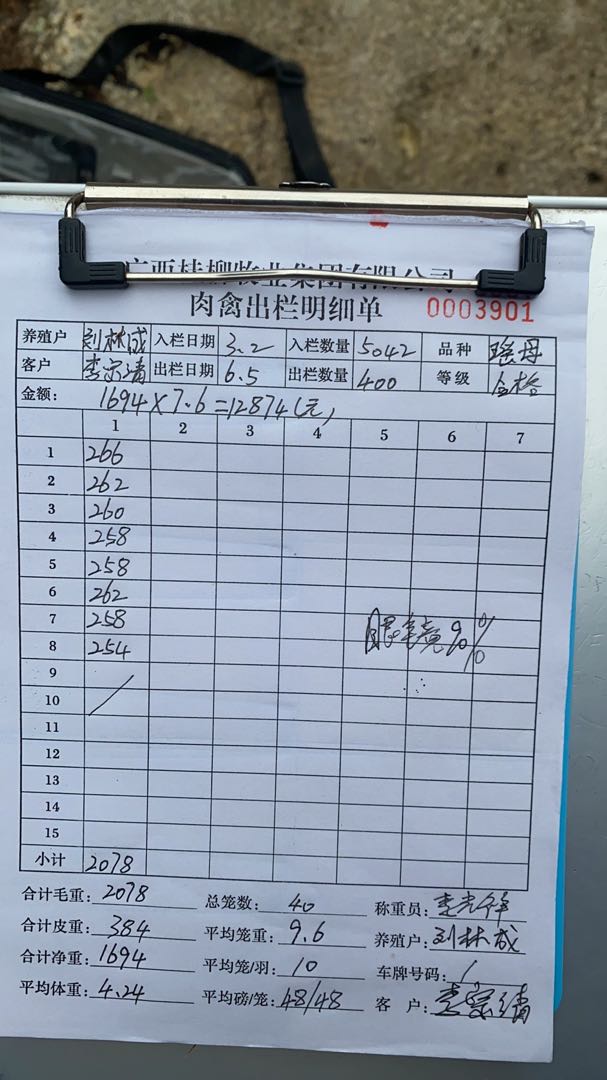 广西桂柳牧业集团有限公司
肉禽出栏明细单 0003901
养殖户 刘林成 入栏日期 3.2 入栏数量 5042 品种 瑶母
客户 李宗清 出栏日期 6.5 出栏数量 400 等级 合格
金额: 1694×7.6=12874(元)
1 2 3 4 5 6 7
1 266
2 262
3 260
4 258
5 258
6 262
7 258
8 254
9
10
11
12
13
14
15
小计 2078
合计毛重: 2078 总笼数: 40 称重员:
合计皮重: 384 平均笼重: 9.6 养殖户: 刘林成
合计净重: 1694 平均笼/羽: 10 车牌号码: /
平均体重: 4.24 平均磅/笼: 48/48 客 户: 李宗清